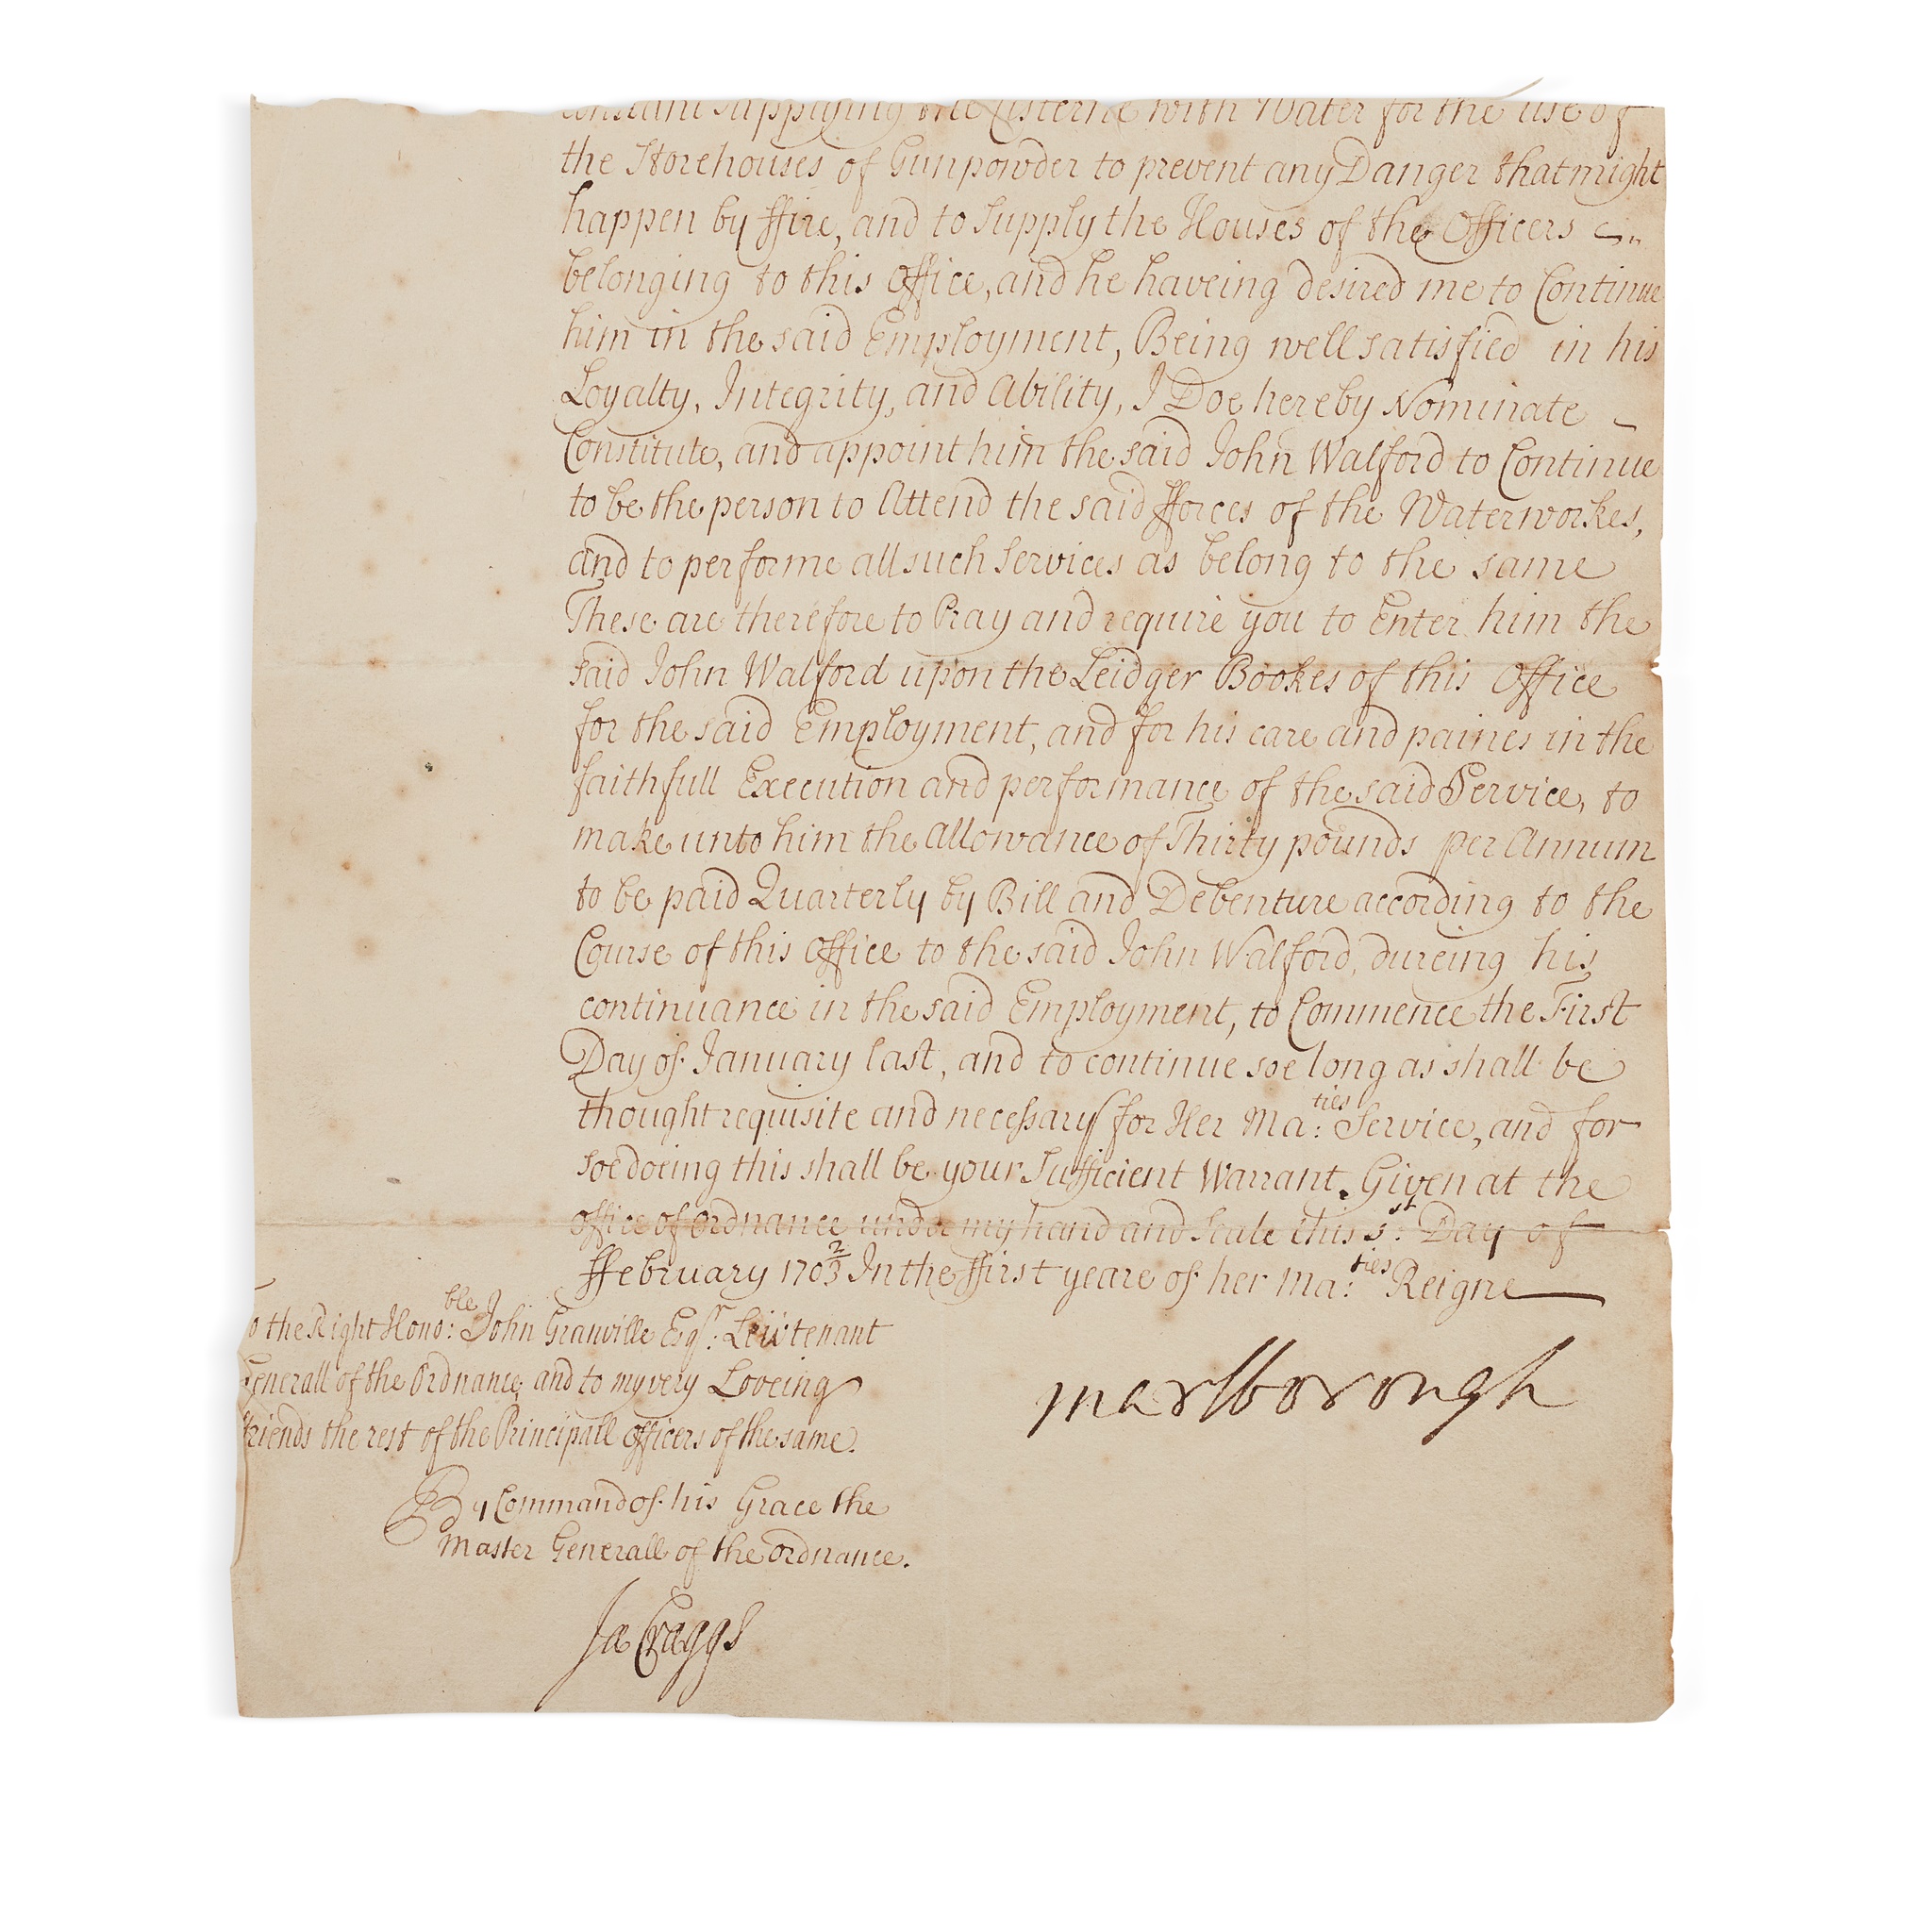 constant supplying the Cisterne with Water for the use of
the Storehouses of Gunpowder to prevent any Danger that might
happen by ffire, and to supply the Houses of the Officers
belonging to this Office, and he haveing desired me to Continue
him in the said Employment, Being well satisfied in his
Loyalty, Integrity, and Ability, I Doe hereby Nominate
Constitute, and appoint him the said John Walford to Continue
to be the person to Attend the said fforces of the Waterworkes,
and to performe all such Services as belong to the same
These are therefore to Pray and require you to Enter him the
said John Walford upon the Leidger Bookes of this Office
for the said Employment, and for his care and paines in the
faithfull Execution and performance of the said Service, to
make unto him the Allowance of Thirty pounds per Annum
to be paid Quarterly by Bill and Debenture according to the
Course of this Office to the said John Walford, dureing his
continuance in the said Employment, to Commence the First
Day of January last, and to continue soe long as shall be
thought requisite and necessary for Her Ma:ties Service, and for
soe doeing this shall be your Sufficient Warrant. Given at the
office of Ordnance under my hand and Seale this Day of
ffebruary 170 2/3 In the ffirst yeare of her Ma:ties Reigne
o the Right Hono:ble John Granville Esqr. Leiutenant
Generall of the Ordnance, and to my very Loveing
ffriends the rest of the Principall Officers of the same.
marlborough
By Command of his Grace the
Master Generall of the Ordnance.
Ja Craggs